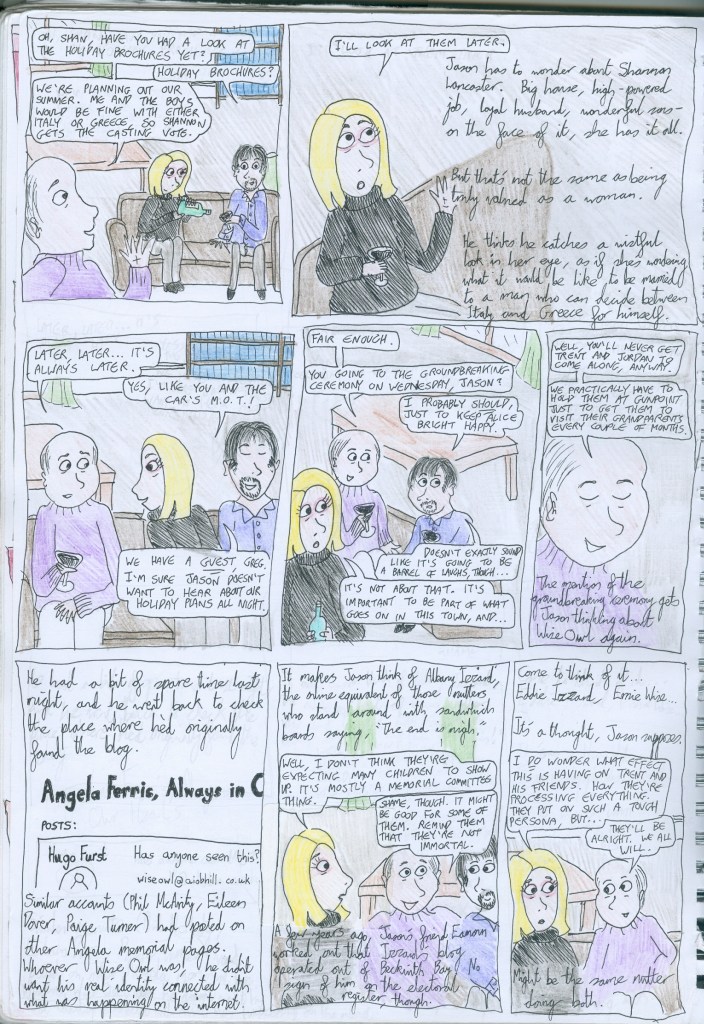 OH, SHAN, HAVE YOU HAD A LOOK AT
THE HOLIDAY BROCHURES YET?
HOLIDAY BROCHURES?
WE'RE PLANNING OUT OUR
SUMMER. ME AND THE BOYS
WOULD BE FINE WITH EITHER
ITALY OR GREECE, SO SHANNON
GETS THE CASTING VOTE.
I'LL LOOK AT THEM LATER.
Jason has to wonder about Shannon
Lancaster. Big house, high-powered
job, loyal husband, wonderful sons-
on the face of it, she has it all.
But that's not the same as being
truly valued as a woman.
He thinks he catches a wistful
look in her eye, as if she's wondering
what it would be like to be married
to a man who can decide between
Italy and Greece for himself.
LATER, LATER... IT'S
ALWAYS LATER.
YES, LIKE YOU AND THE
CAR'S M.O.T.!
WE HAVE A GUEST, GREG.
I'M SURE JASON DOESN'T
WANT TO HEAR ABOUT OUR
HOLIDAY PLANS ALL NIGHT.
FAIR ENOUGH.
YOU GOING TO THE GROUNDBREAKING
CEREMONY ON WEDNESDAY, JASON?
I PROBABLY SHOULD,
JUST TO KEEP ALICE
BRIGHT HAPPY.
DOESN'T EXACTLY SOUND
LIKE IT'S GOING TO BE
A BARREL OF LAUGHS, THOUGH...
IT'S NOT ABOUT THAT. IT'S
IMPORTANT TO BE PART OF WHAT
GOES ON IN THIS TOWN, AND...
WELL, YOU'LL NEVER GET
TRENT AND JORDAN TO
COME ALONG, ANYWAY.
WE PRACTICALLY HAVE TO
HOLD THEM AT GUNPOINT
JUST TO GET THEM TO
VISIT THEIR GRANDPARENTS
EVERY COUPLE OF MONTHS.
The mention of the
groundbreaking ceremony gets
Jason thinking about
Wise Owl again.
He had a bit of spare time last
night, and he went back to check
the place where he'd originally
found the blog.
Angela Ferris, Always in
POSTS:
Hugo Furst
Has anyone seen this?
wiseowl@aiobhill.co.uk
Similar accounts (Phil McAvity, Eileen
Dover, Paige Turner) had posted on
other Angela memorial pages.
Whoever 'Wise Owl' was, he didn't
want his real identity connected with
what was happening on the internet.
It makes Jason think of 'Albany Izzard',
the online equivalent of those nutters
who stand around with sandwich
boards saying, "The end is nigh."
WELL, I DON'T THINK THEY'RE
EXPECTING MANY CHILDREN TO SHOW
UP. IT'S MOSTLY A MEMORIAL COMMITTEE
THING.
SHAME, THOUGH. IT MIGHT
BE GOOD FOR SOME OF
THEM. REMIND THEM
THAT THEY'RE NOT
IMMORTAL.
A few years ago, Jason's friend Eamonn
worked out that Izzard's blog
operated out of Beckinth Bay.
No
sign of him on the electoral
register, though.
Come to think of it...
Eddie Izzard, Ernie Wise...
It's a thought, Jason supposes.
I DO WONDER WHAT EFFECT
THIS IS HAVING ON TRENT AND
HIS FRIENDS. HOW THEY'RE
PROCESSING EVERYTHING.
THEY PUT ON SUCH A TOUGH
PERSONA, BUT...
THEY'LL BE
ALRIGHT. WE ALL
WILL.
Might be the same nutter
doing both.